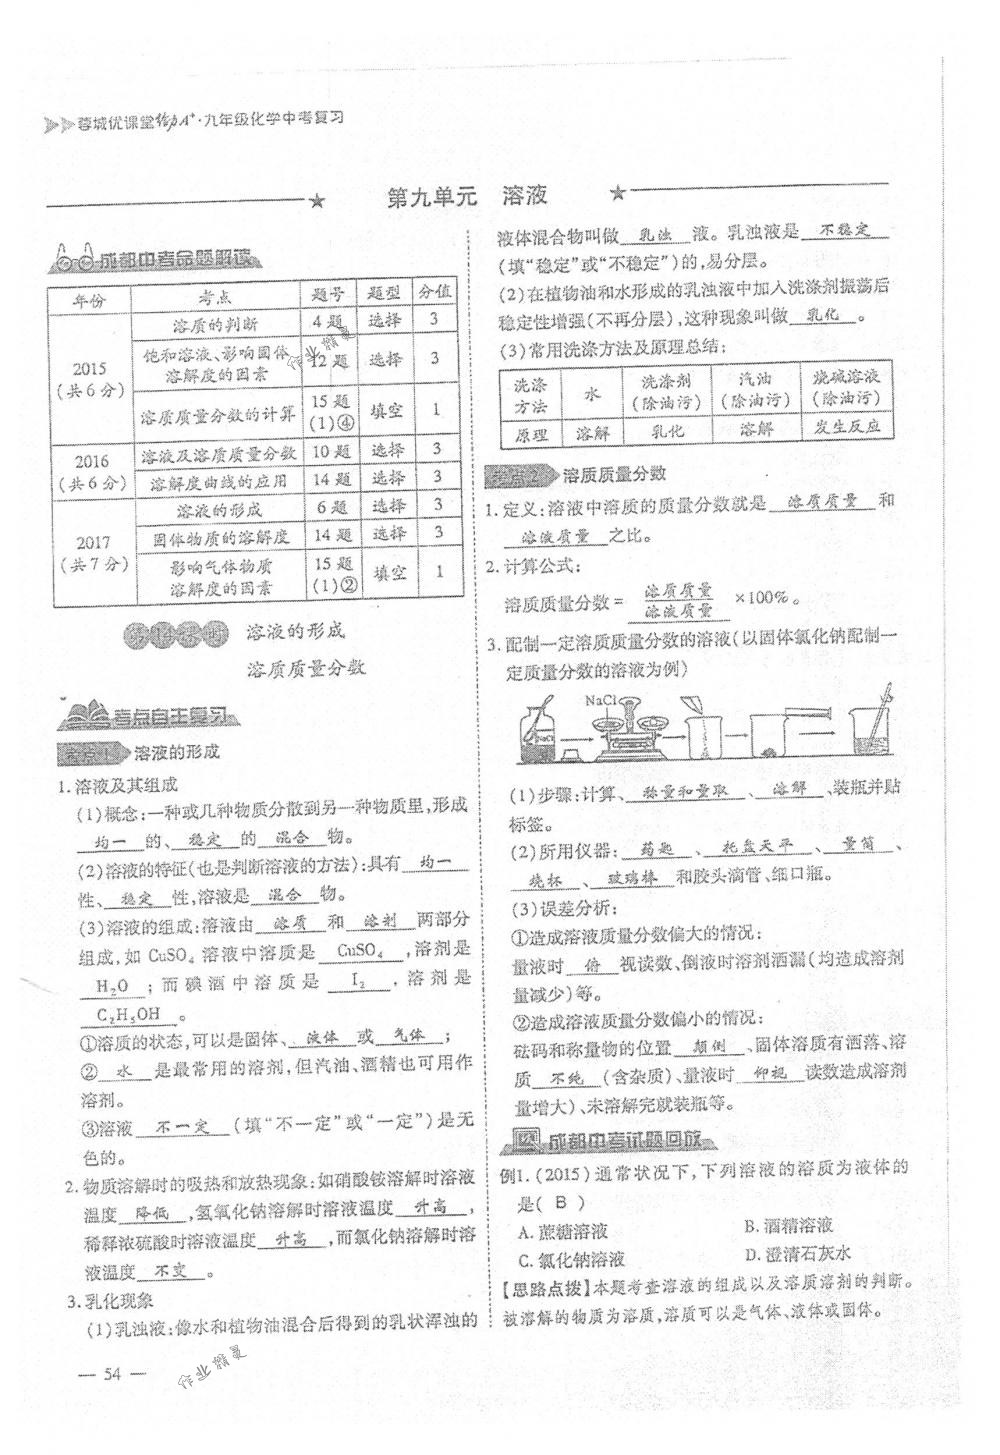 蓉城优课堂 给力A⁺·九年级化学中考复习
第九单元 溶液
成都中考命题解读
年份 考点 题号 题型 分值
2015
(共6分)
溶质的判断 4题 选择 3
饱和溶液、影响固体
溶解度的因素 12题 选择 3
溶质质量分数的计算 15题
(1)④ 填空 1
2016
(共6分)
溶液及溶质质量分数 10题 选择 3
溶解度曲线的应用 14题 选择 3
2017
(共7分)
溶液的形成 6题 选择 3
固体物质的溶解度 14题 选择 3
影响气体物质
溶解度的因素 15题
(1)② 填空 1
溶液的形成
溶质质量分数
考点自主复习
考点1 溶液的形成
1.溶液及其组成
(1)概念:一种或几种物质分散到另一种物质里,形成
均一 的、 稳定 的 混合 物。
(2)溶液的特征(也是判断溶液的方法):具有 均一
性、 稳定 性,溶液是 混合 物。
(3)溶液的组成:溶液由 溶质 和 溶剂 两部分
组成,如 CuSO₄ 溶液中溶质是 CuSO₄ ,溶剂是
H₂O ;而碘酒中溶质是 I₂ ,溶剂是
C₂H₅OH 。
①溶质的状态,可以是固体、 液体 或 气体 ;
② 水 是最常用的溶剂,但汽油、酒精也可用作
溶剂。
③溶液 不一定 (填“不一定”或“一定”)是无
色的。
2.物质溶解时的吸热和放热现象:如硝酸铵溶解时溶液
温度 降低 ,氢氧化钠溶解时溶液温度 升高 ,
稀释浓硫酸时溶液温度 升高 ,而氯化钠溶解时溶
液温度 不变 。
3.乳化现象
(1)乳浊液:像水和植物油混合后得到的乳状浑浊的
— 54 —
作业精灵
作业精灵
液体混合物叫做 乳浊 液。乳浊液是 不稳定
(填“稳定”或“不稳定”)的,易分层。
(2)在植物油和水形成的乳浊液中加入洗涤剂振荡后
稳定性增强(不再分层),这种现象叫做 乳化 。
(3)常用洗涤方法及原理总结:
洗涤
方法 水 洗涤剂
(除油污) 汽油
(除油污) 烧碱溶液
(除油污)
原理 溶解 乳化 溶解 发生反应
考点2 溶质质量分数
1.定义:溶液中溶质的质量分数就是 溶质质量 和
溶液质量 之比。
2.计算公式:
溶质质量分数= 溶质质量
溶液质量 ×100%。
3.配制一定溶质质量分数的溶液(以固体氯化钠配制一
定质量分数的溶液为例)
NaCl
NaCl
(1)步骤:计算、 称量和量取 、 溶解 、装瓶并贴
标签。
(2)所用仪器: 药匙 、 托盘天平 、 量筒 、
烧杯 、 玻璃棒 和胶头滴管、细口瓶。
(3)误差分析:
①造成溶液质量分数偏大的情况:
量液时 俯 视读数、倒液时溶剂洒漏(均造成溶剂
量减少)等。
②造成溶液质量分数偏小的情况:
砝码和称量物的位置 颠倒 、固体溶质有洒落、溶
质 不纯 (含杂质)、量液时 仰视 读数造成溶剂
量增大)、未溶解完就装瓶等。
成都中考试题回放
例1.(2015)通常状况下,下列溶液的溶质为液体的
是( B )
A.蔗糖溶液 B.酒精溶液
C.氯化钠溶液 D.澄清石灰水
【思路点拨】本题考查溶液的组成以及溶质溶剂的判断。
被溶解的物质为溶质,溶质可以是气体、液体或固体。